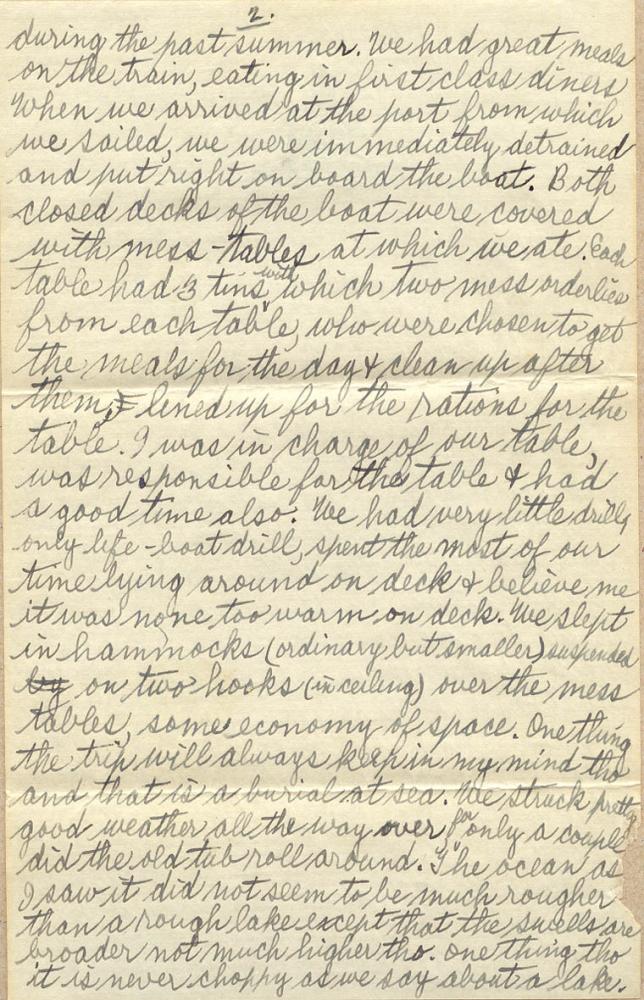 2.
during the past summer. We had great meals
on the train, eating in first class diners
When we arrived at the port from which
we sailed, we were immediately detrained
and put right on board the boat. Both
closed decks of the boat were covered
with mess-tables at which we ate. Each
table had 3 tins with which two mess orderlies
from each table, who were chosen to get
the meals for the day & clean up after
them, lined up for the rations for the
table. I was in charge of our table,
was responsible for the table & had
a good time also. We had very little drills,
only life-boat drill, spent the most of our
time lying around on deck & believe me
it was none too warm on deck. We slept
in hammocks (ordinary but smaller) suspended
by on two hooks (in ceiling) over the mess
tables, some economy of space. One thing
the trip will always keep in my mind tho
and that is a burial at sea. We struck pretty
good weather all the way over for only a couple
did the old tub roll around. The ocean as
I saw it did not seem to be much rougher
than a rough lake except that the swells are
broader not much higher tho. one thing tho
it is never choppy as we say about a lake.